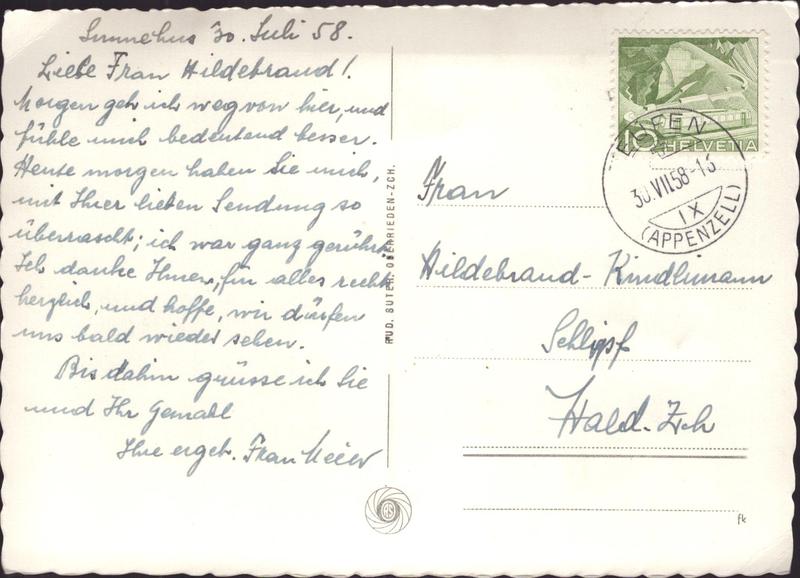 Sunnehus 30. Juli 58.
Liebe Frau Hildebrand!
Morgen geh ich weg von hier, und
fühle mich bedeutend besser.
Heute morgen haben Sie mich,
mit Ihrer lieben Sendung so
überrascht; ich war ganz gerührt
Ich danke Ihnen, für alles recht
herzlich, und hoffe, wir dürfen
uns bald wieder sehen.
Bis dahin grüsse ich Sie
und Ihr Gemahl
Ihre ergeb. Frau Meier
RUD. SUTER, OBERRIEDEN-ZCH.
RS
10
HELVETIA
30.VII.58-
IX
(APPENZELL)
Frau
Hildebrand-Kindlimann
Schlipf
Wald. Zch
fk